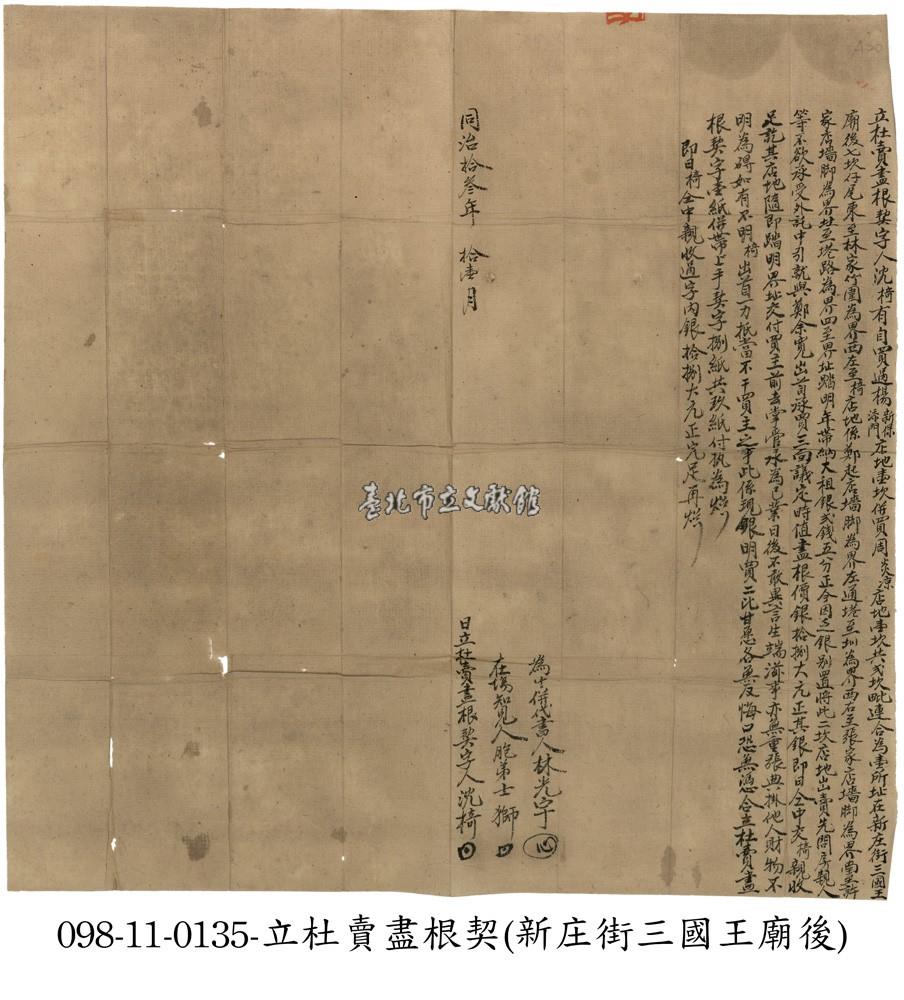 立杜賣盡根契字人沈椅有自買過楊新傑添門店地壹坎併買周炎凉店地壹坎共弍坎毗連合為壹所址在新庄街三國王
廟後七坎仔尾東至林家竹圍為界西左至椅店地係鄭起店墻脚為界左通巷至圳為界西右至張家店墻脚為界南至許
家店墻脚為界北至巷路為界四至界址踏明年帶納大租銀弍錢五分正今因乏銀別置將此二坎店地出賣先問房親人
等不欲承受外託中引就與鄭余寬出首承買三面議定時值盡根價銀拾捌大元正其銀即日仝中交椅親收
足訖其店地隨即踏明界址交付買主前去掌管永為己業日後不敢異言生端滋事亦無重張典掛他人財物不
明為碍如有不明椅出首一力抵當不干買主之事此係現銀明賣二比甘愿各無反悔口恐無憑合立杜賣盡
根契字壹紙併帶上手契字捌紙共玖紙付執為炤
即日椅仝中親收過字內銀拾捌大元正完足再炤
為中併代書人林光宇
在塲知見人胞弟士獅
日立杜賣盡根契字人沈椅
同治拾叁年 拾壹月
臺北市立文獻館
098-11-0135-立杜賣盡根契(新庄街三國王廟後)